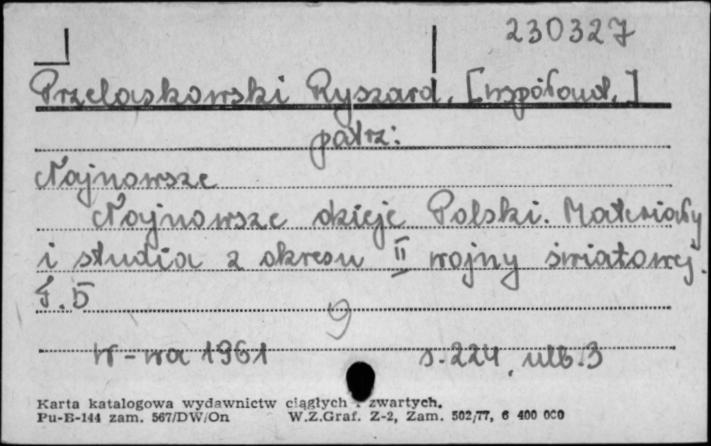 230327
Przelaskowski Ryszard, [współaut.]
patrz:
Najnowsze
Najnowsze dzieje Polski. Materiały
i studia z okresu II wojny światowej.
T. 5
9
W-wa 1961 s. 224, ulb. 3
Karta katalogowa wydawnictw ciągłych i zwartych.
Pu-B-144 zam. 567/DW/On W.Z.Graf. Z-2, Zam. 502/77, 6 400 000